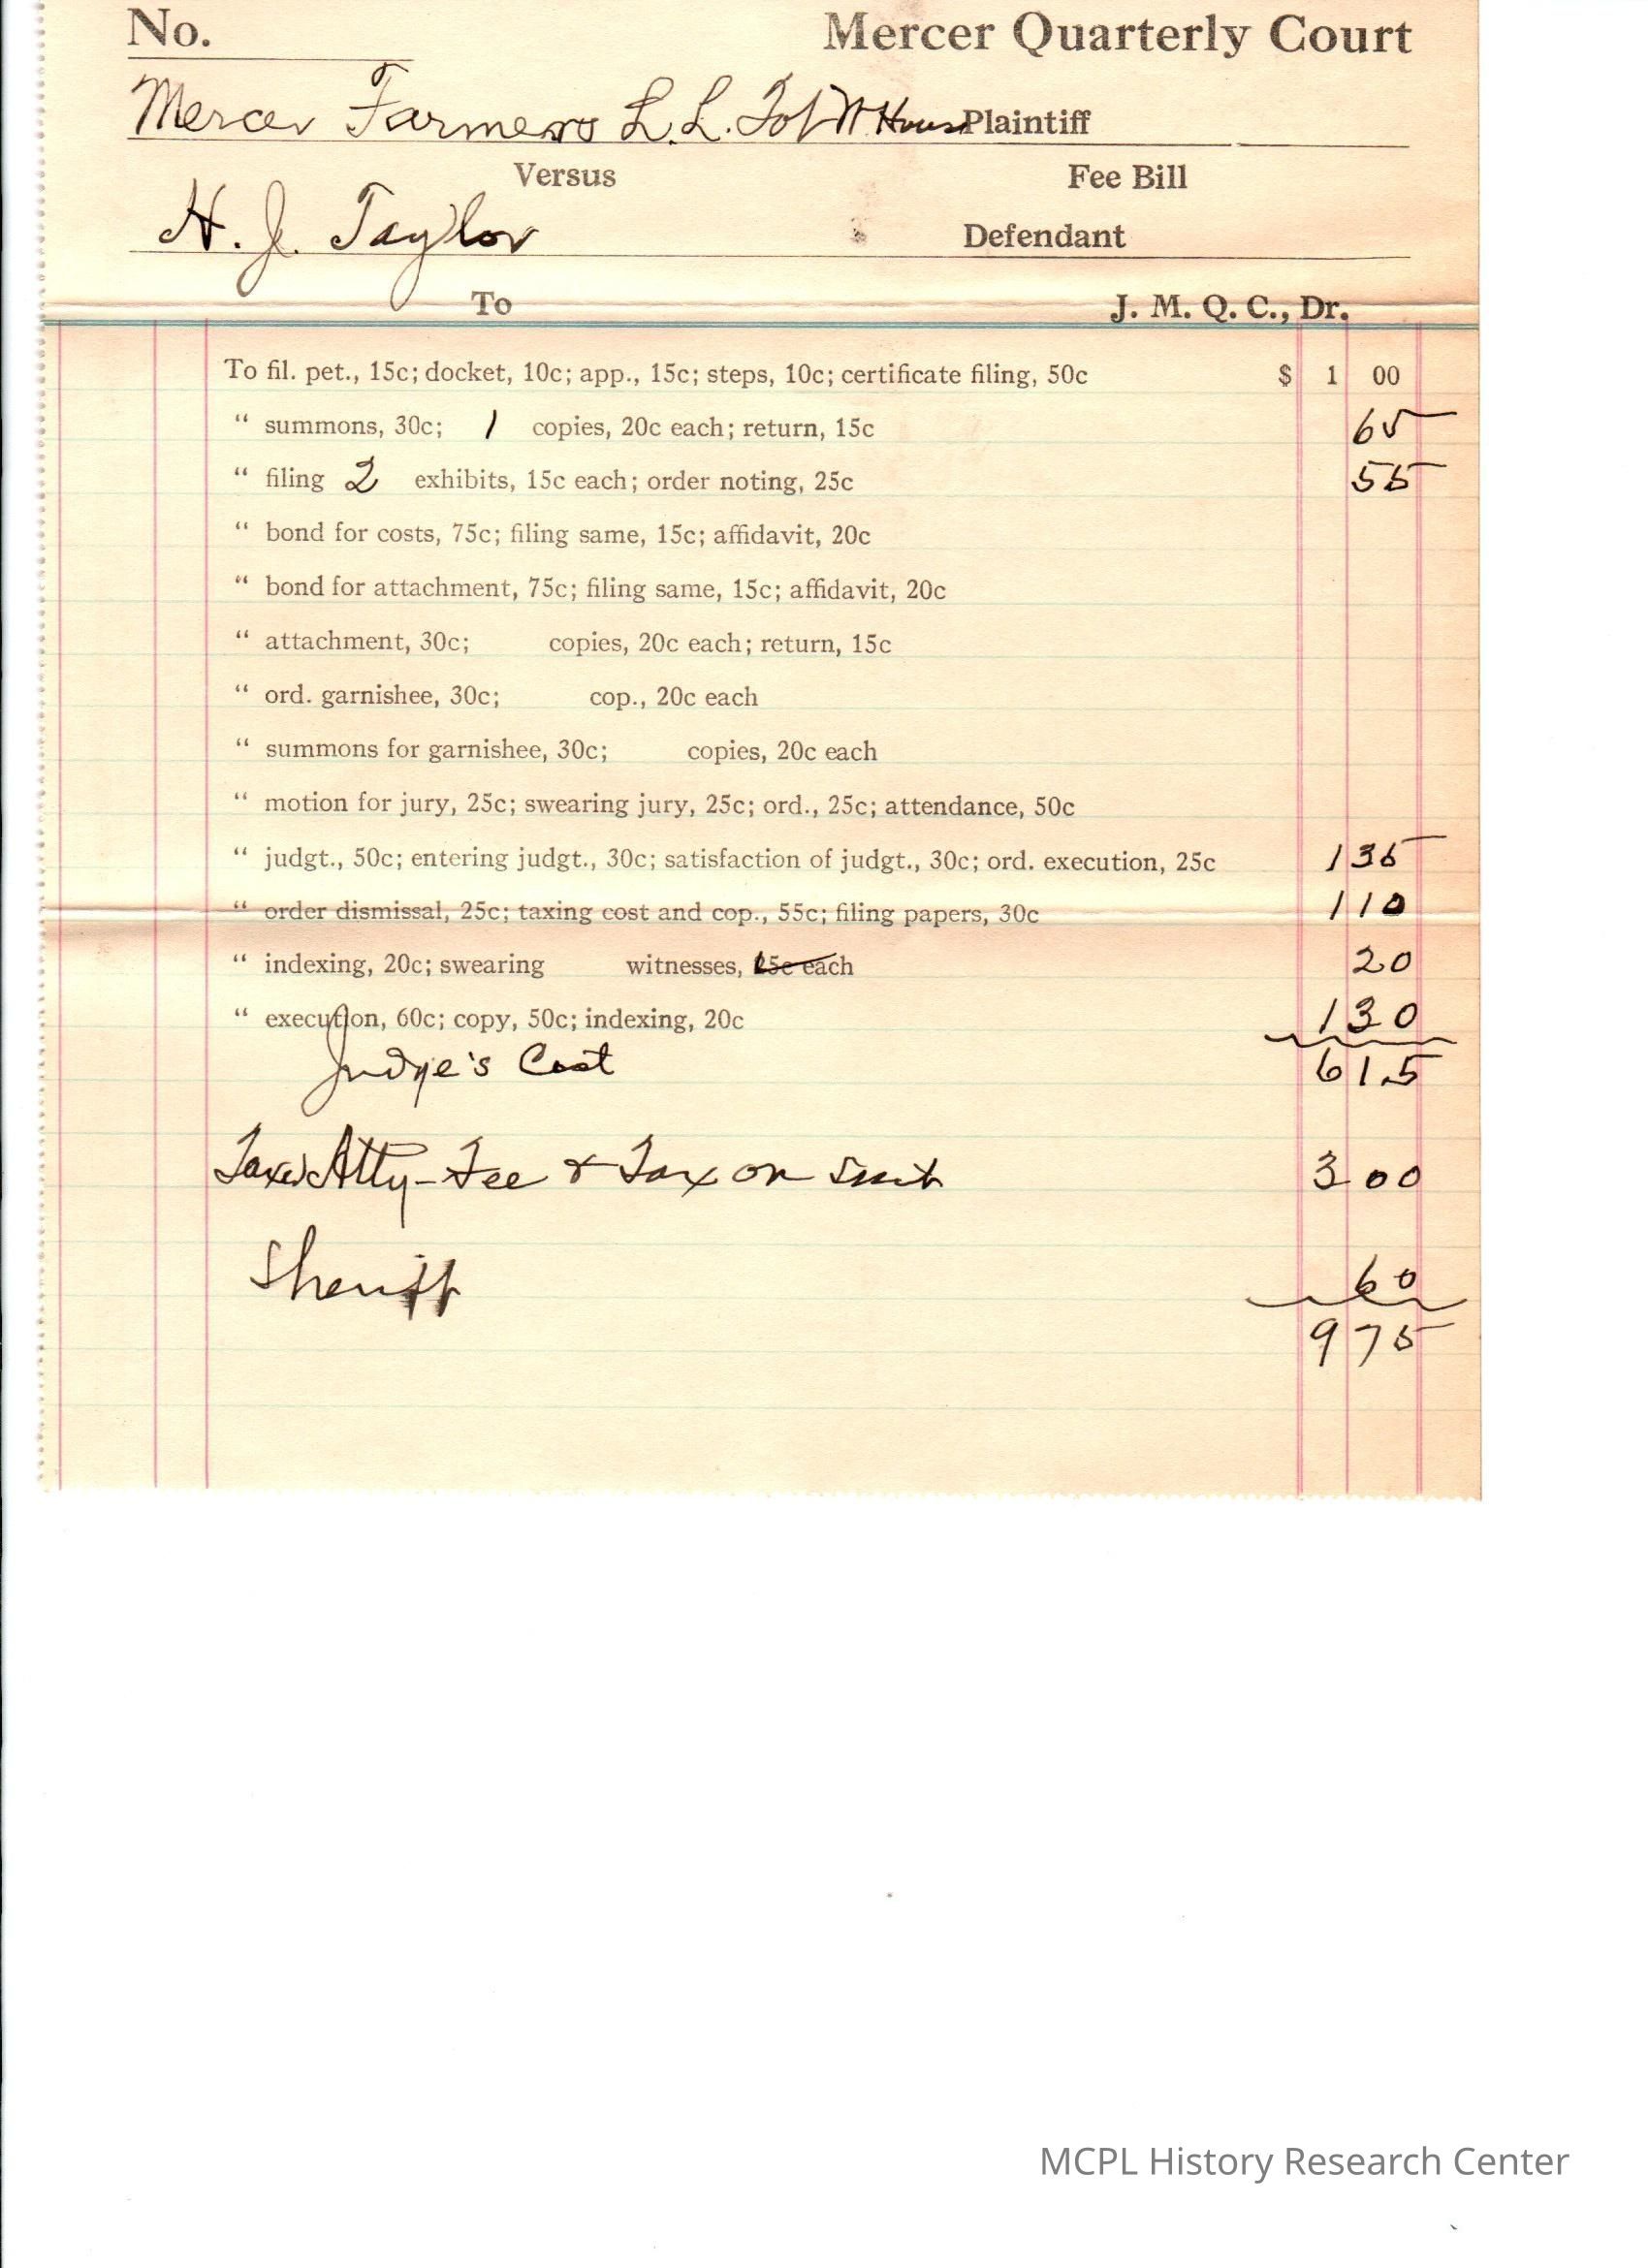 No. Mercer Quarterly Court
Mercer Farmers L. L. Tob W House Plaintiff
Versus Fee Bill
H. J. Taylor Defendant
To J. M. Q. C., Dr.
To fil. pet., 15c; docket, 10c; app., 15c; steps, 10c; certificate filing, 50c $ 1 00
" summons, 30c; 1 copies, 20c each; return, 15c 65
" filing 2 exhibits, 15c each; order noting, 25c 55
" bond for costs, 75c; filing same, 15c; affidavit, 20c
" bond for attachment, 75c; filing same, 15c; affidavit, 20c
" attachment, 30c; copies, 20c each; return, 15c
" ord. garnishee, 30c; cop., 20c each
" summons for garnishee, 30c; copies, 20c each
" motion for jury, 25c; swearing jury, 25c; ord., 25c; attendance, 50c
" judgt., 50c; entering judgt., 30c; satisfaction of judgt., 30c; ord. execution, 25c 1 35
" order dismissal, 25c; taxing cost and cop., 55c; filing papers, 30c 1 10
" indexing, 20c; swearing witnesses, 15c each 20
" execution, 60c; copy, 50c; indexing, 20c 1 30
Judge's Cost 6 15
Taxed Atty-Fee & Tax on Suit 3 00
Sheriff 60
9 75
MCPL History Research Center